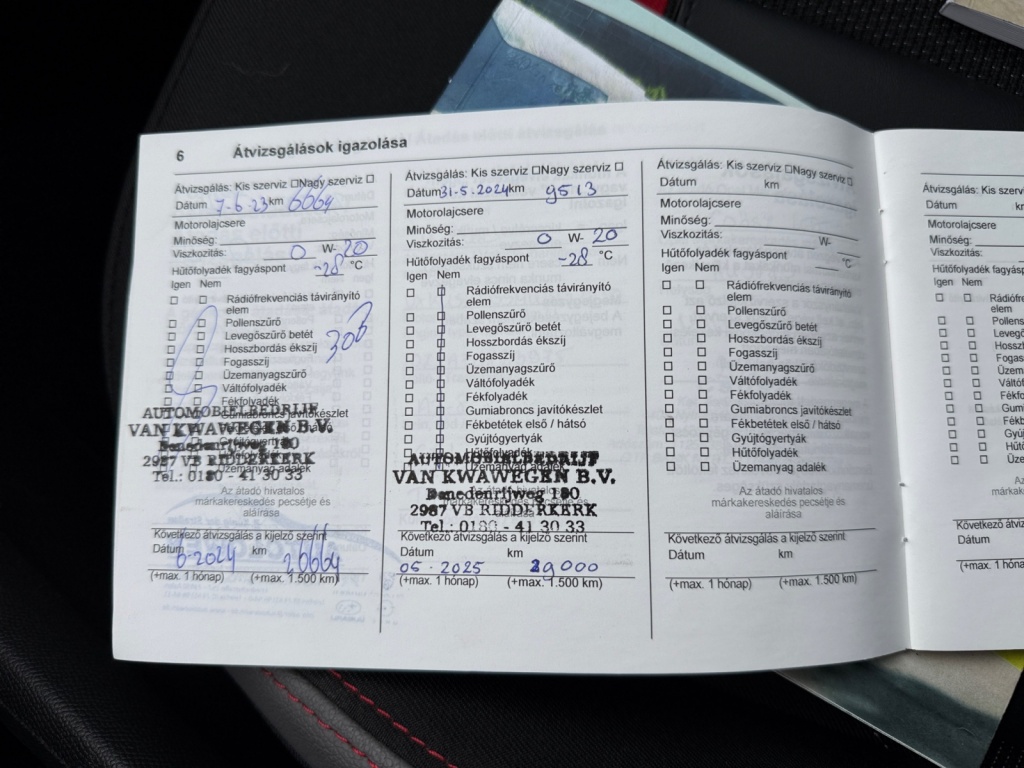 6 Átvizsgálások igazolása
Átvizsgálás: Kis szerviz ☐ Nagy szerviz ☐
Dátum 7-6-23 km 6664
Motorolajcsere
Minőség:
Viszkozitás: 0 W- 20
Hűtőfolyadék fagyáspont -28 °C
Igen Nem
Rádiófrekvenciás távirányító
elem
Pollenszűrő
Levegőszűrő betét
Hosszbordás ékszíj
Fogasszíj
Üzemanyagszűrő
Váltófolyadék
Fékfolyadék
Gumiabroncs javítókészlet
AUTOMOBIELBEDRIJF
VAN KWAWEGEN B.V.
Benedenrijweg 180
2987 VB RIDDERKERK
Üzemanyag adalék
Tel.: 0180 - 41 30 33
Az átadó hivatalos
márkakereskedés pecsétje és
aláírása
Következő átvizsgálás a kijelző szerint
Dátum 6-2024 km 26664
(+max. 1 hónap) (+max. 1.500 km)
Átvizsgálás: Kis szerviz ☐ Nagy szerviz ☐
Dátum 31-5-2024 km 9513
Motorolajcsere
Minőség:
Viszkozitás: 0 W- 20
Hűtőfolyadék fagyáspont -28 °C
Igen Nem
Rádiófrekvenciás távirányító
elem
Pollenszűrő
Levegőszűrő betét
Hosszbordás ékszíj
Fogasszíj
Üzemanyagszűrő
Váltófolyadék
Fékfolyadék
Gumiabroncs javítókészlet
Fékbetétek első / hátsó
Gyújtógyertyák
Hűtőfolyadék
AUTOMOBIELBEDRIJF
Üzemanyag adalék
VAN KWAWEGEN B.V.
Az átadó hivatalos
Benedenrijweg 180
márkakereskedés pecsétje és
2987 VB RIDDERKERK
aláírása
Tel.: 0180 - 41 30 33
Következő átvizsgálás a kijelző szerint
Dátum km
05-2025 29000
(+max. 1 hónap) (+max. 1.500 km)
Átvizsgálás: Kis szerviz ☐ Nagy szerviz ☐
Dátum km
Motorolajcsere
Minőség:
Viszkozitás: W-
Hűtőfolyadék fagyáspont °C
Igen Nem
Rádiófrekvenciás távirányító
elem
Pollenszűrő
Levegőszűrő betét
Hosszbordás ékszíj
Fogasszíj
Üzemanyagszűrő
Váltófolyadék
Fékfolyadék
Gumiabroncs javítókészlet
Fékbetétek első / hátsó
Gyújtógyertyák
Hűtőfolyadék
Üzemanyag adalék
Az átadó hivatalos
márkakereskedés pecsétje és
aláírása
Következő átvizsgálás a kijelző szerint
Dátum km
(+max. 1 hónap) (+max. 1.500 km)
Átvizsgálás: Kis szerv
Dátum
Motorolajcsere
Minőség:
Viszkozitás:
Hűtőfolyadék fagyásp
Igen Nem
Rádiófre
elem
Pollensz
Levegő
Hosszb
Fogass
Üzema
Váltófo
Fékfo
Gumi
Fékb
Gyúj
Hűtő
Üze
Az á
márkakere
Következő átviz
Dátum
(+max. 1 hóna